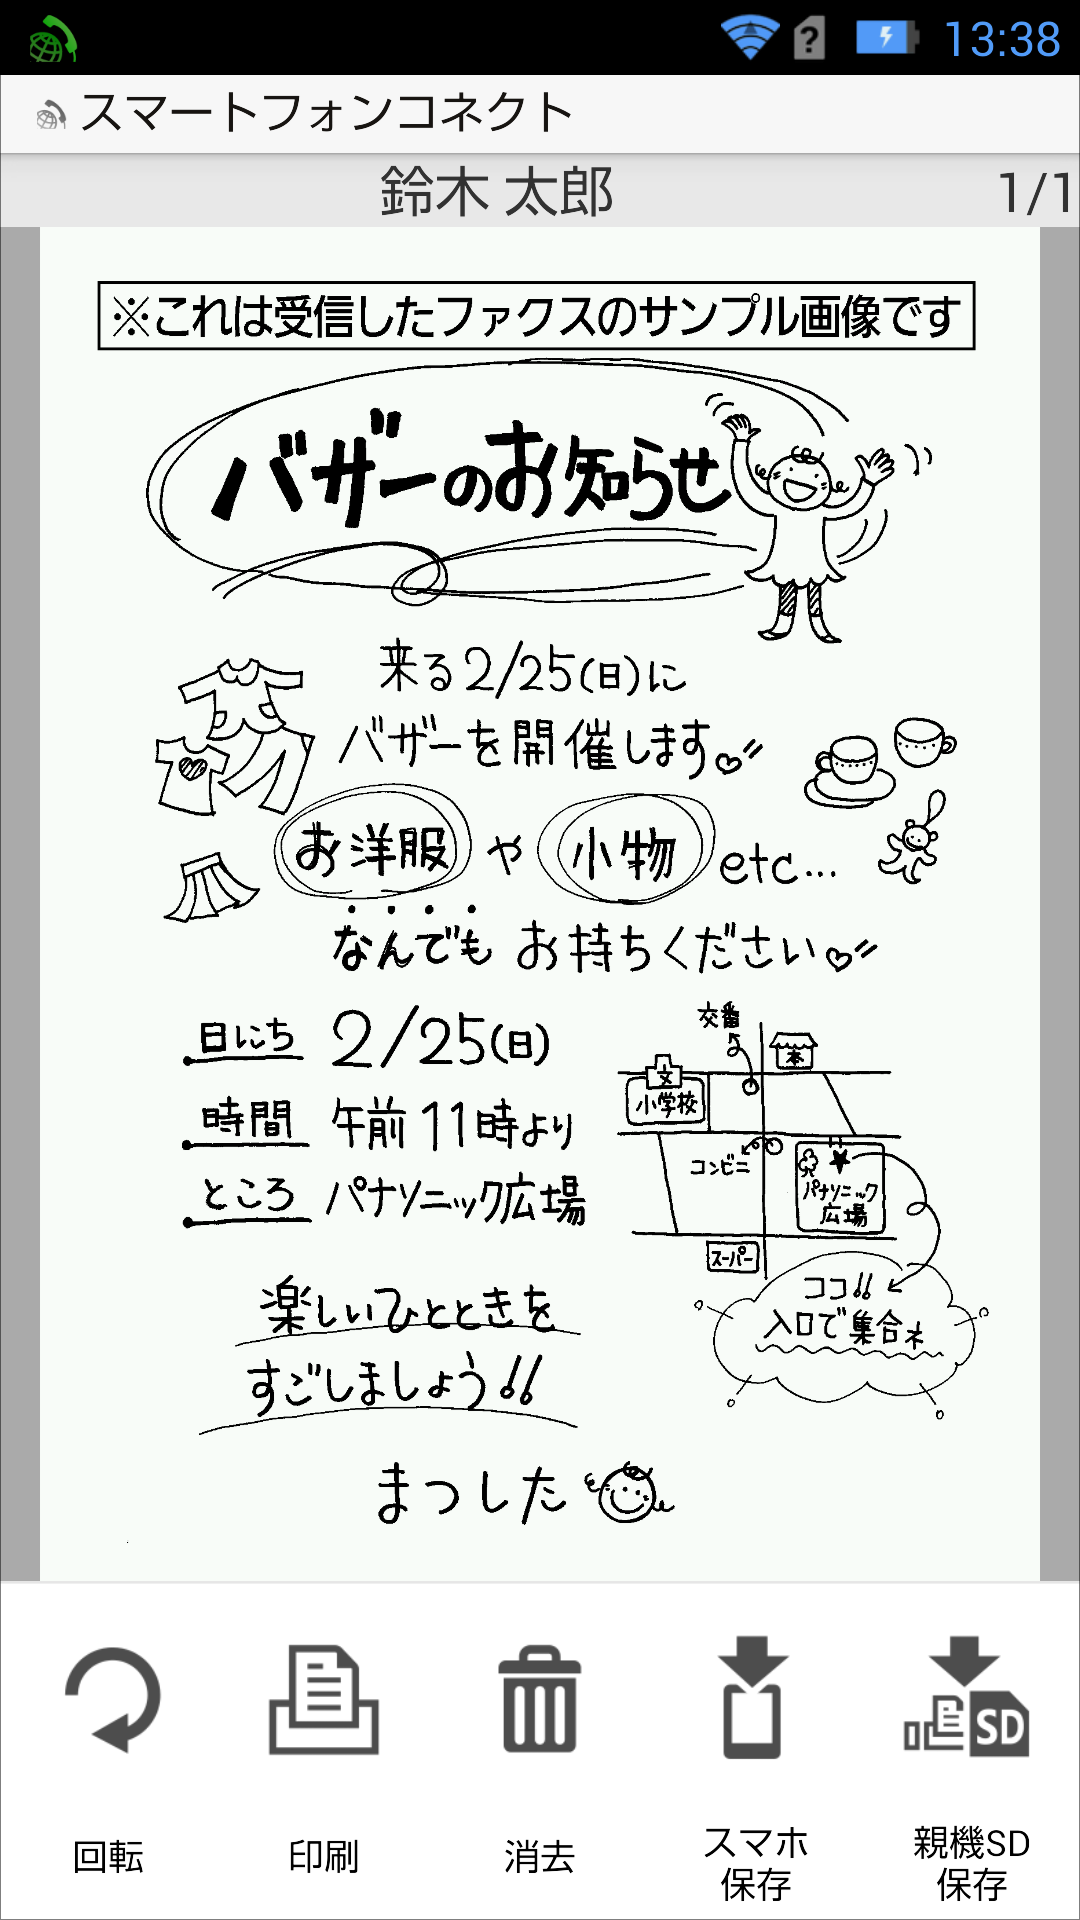 13:38
スマートフォンコネクト
鈴木 太郎
1/1
※これは受信したファクスのサンプル画像です
バザーのお知らせ
来る2/25(日)に
バザーを開催します
お洋服や小物etc...
なんでもお持ちください
日にち 2/25(日)
時間 午前11時より
ところ パナソニック広場
交番
本
文
小学校
コンビニ
パナソニック
広場
スーパー
ココ!!
入口で集合ネ
楽しいひとときを
すごしましょう!!
まつした
SD
回転
印刷
消去
スマホ
保存
親機SD
保存